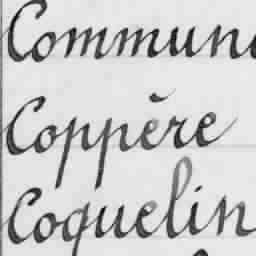 Commun
Coppère
Coquelin